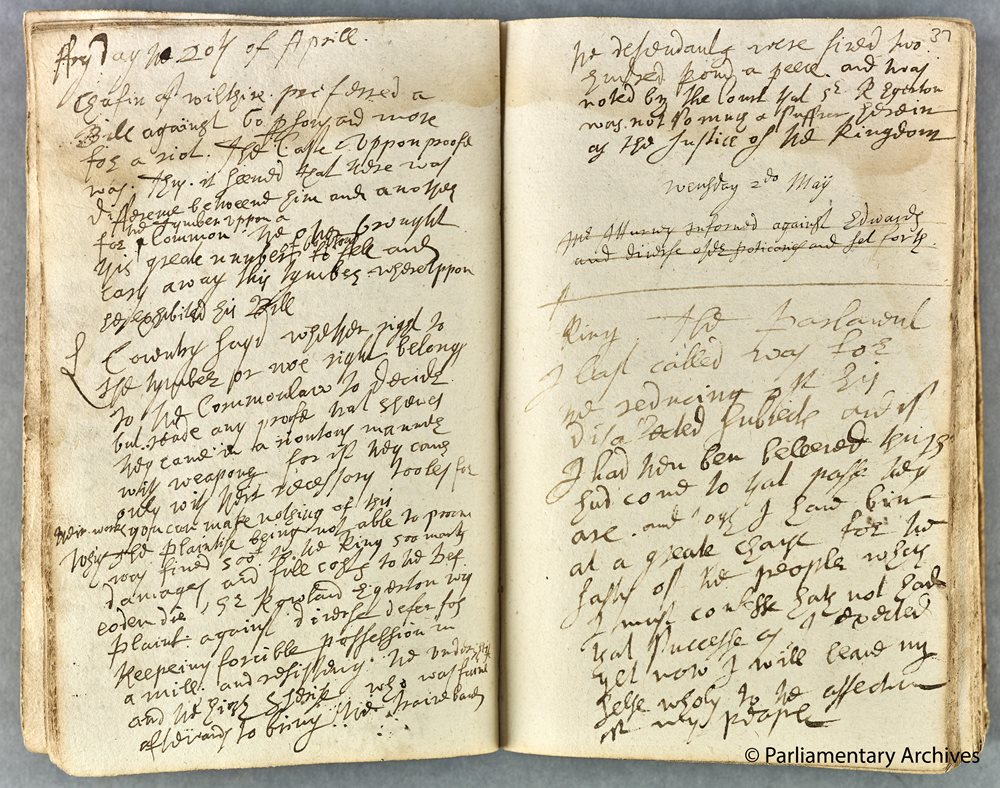 ffryday the 20th of Aprill.
Chafin of wiltshire preferred a
Bill against 60 persons and more
for a riot. The Case uppon proofe
was. Thus. it seemed that there was
difference betweend him and another
for the tymber uppon a
Common. the other brought
his greate number to fell and
cary away this tymber whereuppon
hee exhibited his Bill
Coventry sayd whether right to
the tymber or noe right belongs
to the Commonlaw to decide.
but. reade any profe that shewes
they came in a riottous manner
with weapons for if they came
only with there necessary tooles for
their worke you can make nothing of this
Why the plaintife being not able to prove
was fined 500 to the King 500 marks
damages and full costs to the Def
eodem die, Sr Rowland Egerton was
plaint: against diverse defer for
keepeing forcible possession in
a mill. and resisting. the under
and the high Sherife who was faine
afterwards to bring the traine bands
37
the defendants were fined two
hundred pound a peece. and was
noted by the Court that Sr R Egerton
was not so much a sufferer herein
as the Justice of the Kingdom
Wensday 2do May
Mr Atturney informed against Edwards
and diverse other and set forth.
King The Parlament
last called was for
the reducing of his
disafected subiects and if
I had then ben beleeved things
had come to that passe they
are. and I have bin
at a greate charge for the
safty of the people which
I must confesse hath not had
that successe as I expected
yet now I will leave my
selfe wholy to the affection
of my people
© Parliamentary Archives